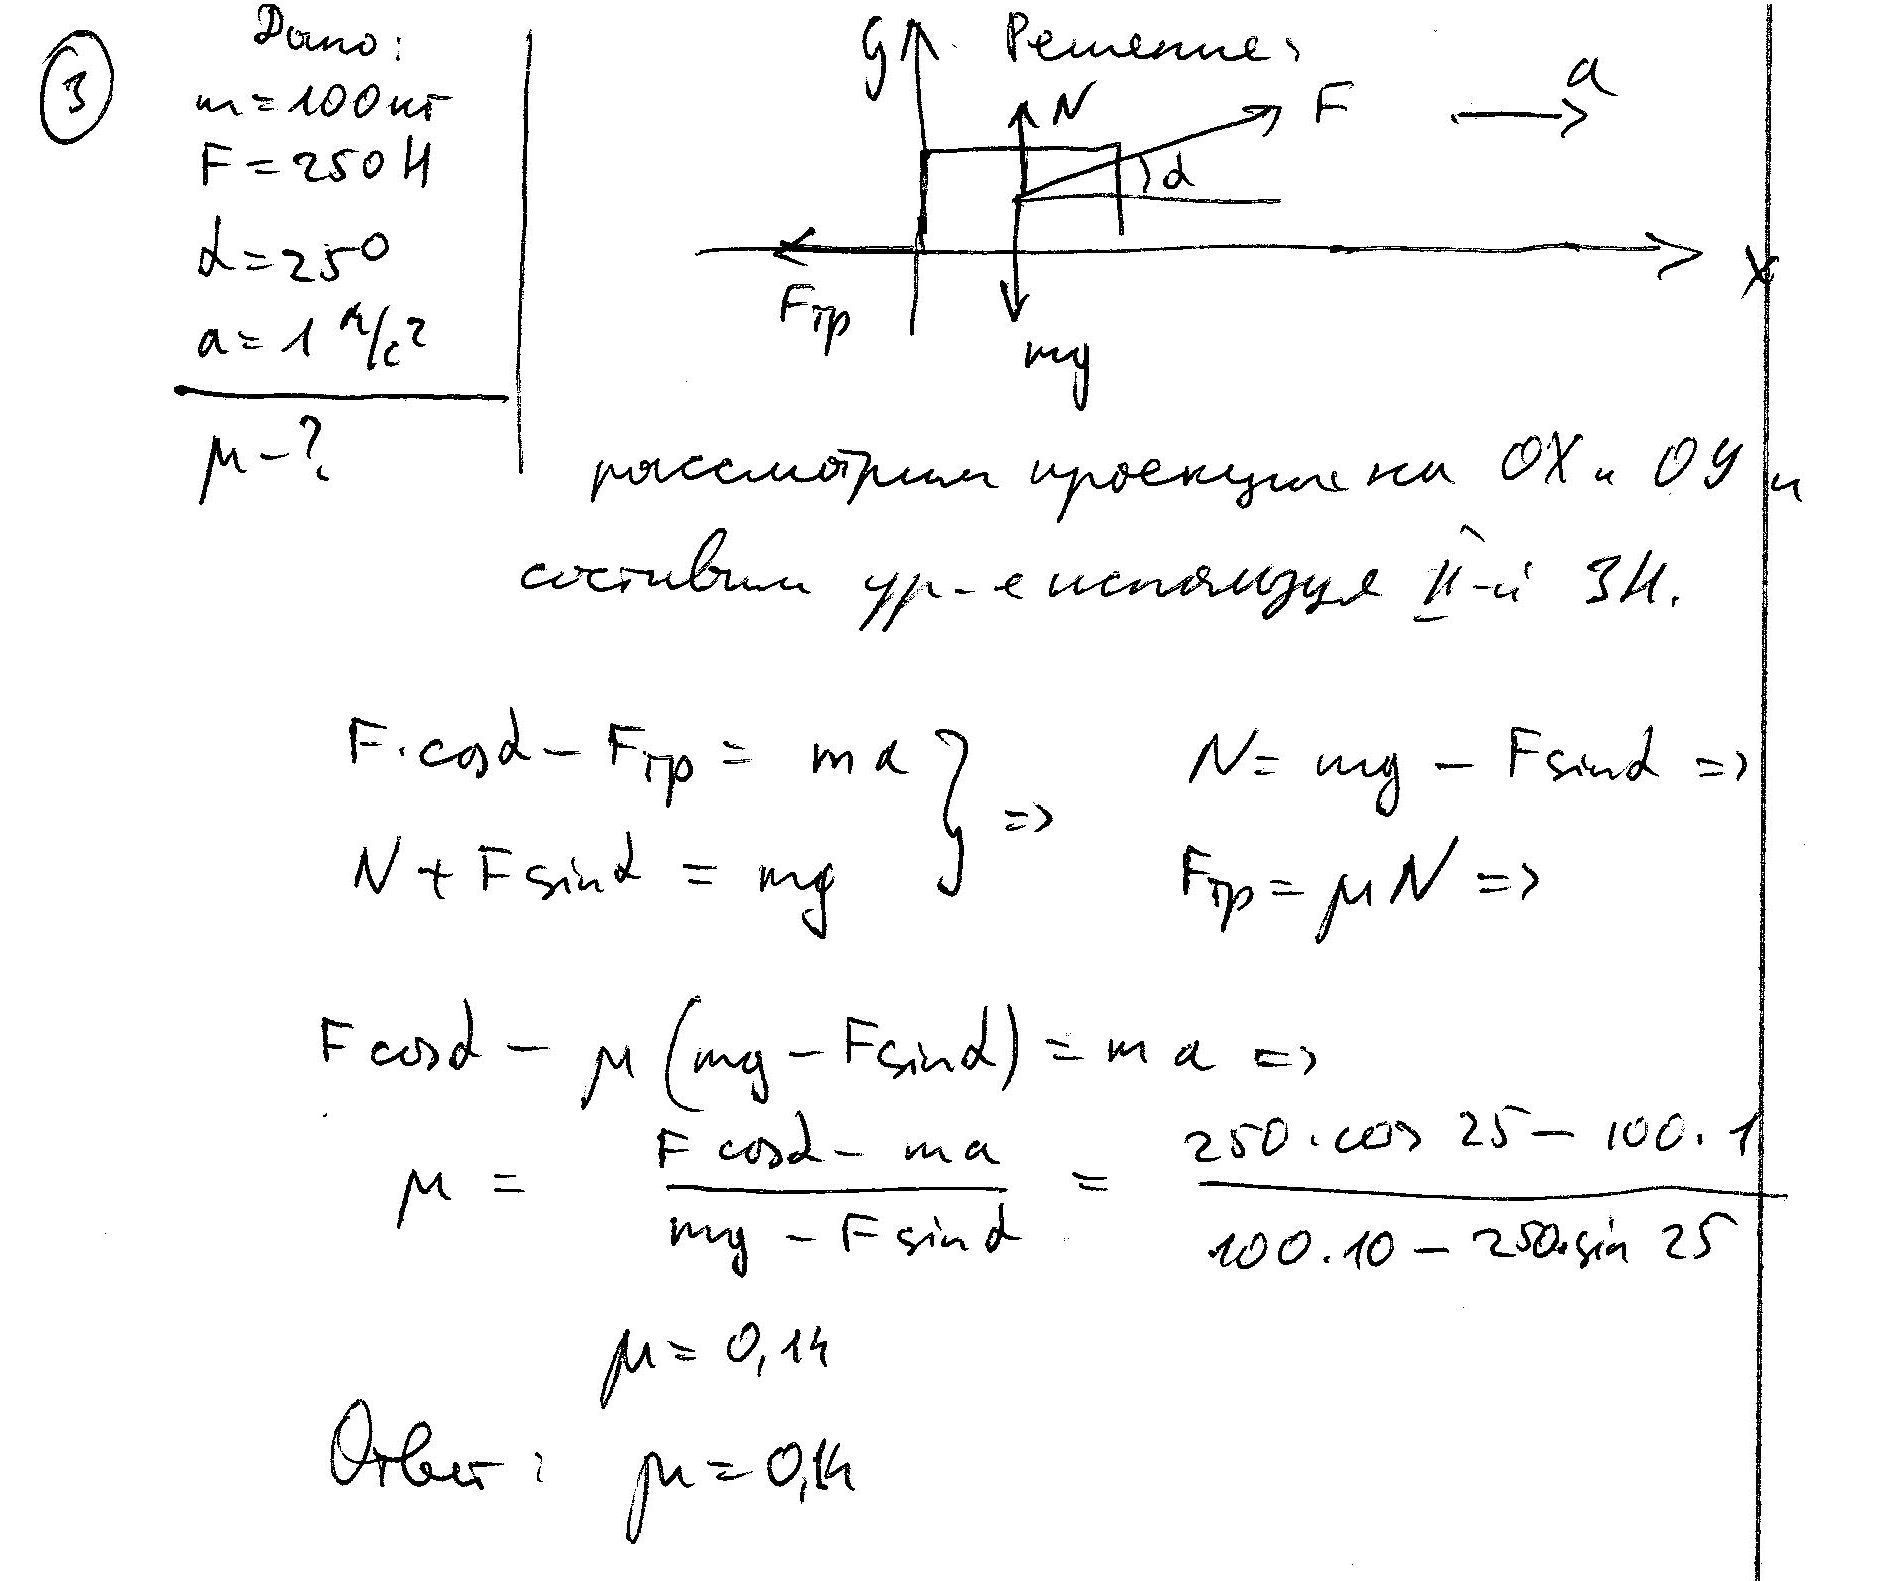 3
Дано:
m = 100 кг
F = 250 Н
α = 25°
a = 1 м/с²
μ - ?
Решение:
y
N
F
a
α
Fтр
mg
x
рассмотрим проекции на OX и OY и
составим ур-е используя II-й ЗН.
F·cosα - Fтр = ma } => N = mg - Fsinα =>
N + Fsinα = mg Fтр = μN =>
Fcosα - μ(mg - Fsinα) = ma =>
μ = (Fcosα - ma)/(mg - Fsinα) = (250·cos 25 - 100·1)/(100·10 - 250·sin 25)
μ = 0,14
Ответ: μ = 0,14